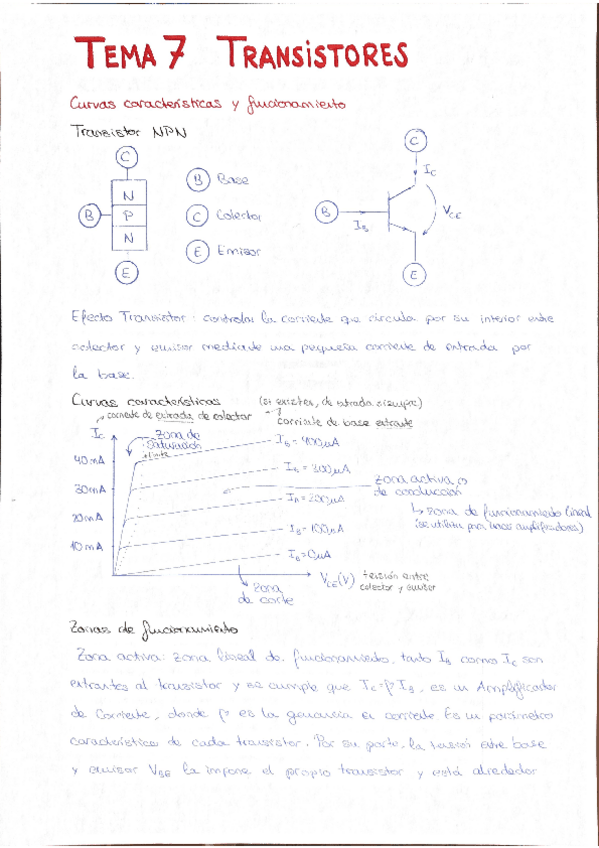 TEMA 7 TRANSISTORES
Curvas características y funcionamiento
Transistor NPN
C
N
B P
N
E
B Base
C Colector
E Emisor
C
IC
B
IB
VCE
E
Efecto Transistor: controlar la corriente que circula por su interior entre
colector y emisor mediante una pequeña corriente de entrada por
la base.
Curvas características (si existen, de entrada siempre)
corriente de entrada de colector
corriente de base entrante
IC
Zona de
saturación
límite
40mA
30mA
20mA
10mA
IB = 400μA
IB = 300μA
IB = 200μA
IB = 100μA
IB = 0μA
zona activa o
de conducción
↳ zona de funcionamiento lineal
(se utiliza para hacer amplificadores)
VCE(V) tensión entre
colector y emisor
zona
de corte
Zonas de funcionamiento
Zona activa: zona lineal de funcionamiento, tanto IB como IC son
entrantes al transistor y se cumple que IC=βIB, es un Amplificador
de Corriente, donde β es la ganancia en corriente. Es un parámetro
característico de cada transistor. Por su parte, la tensión entre base
y emisor VBE la impone el propio transistor y está alrededor